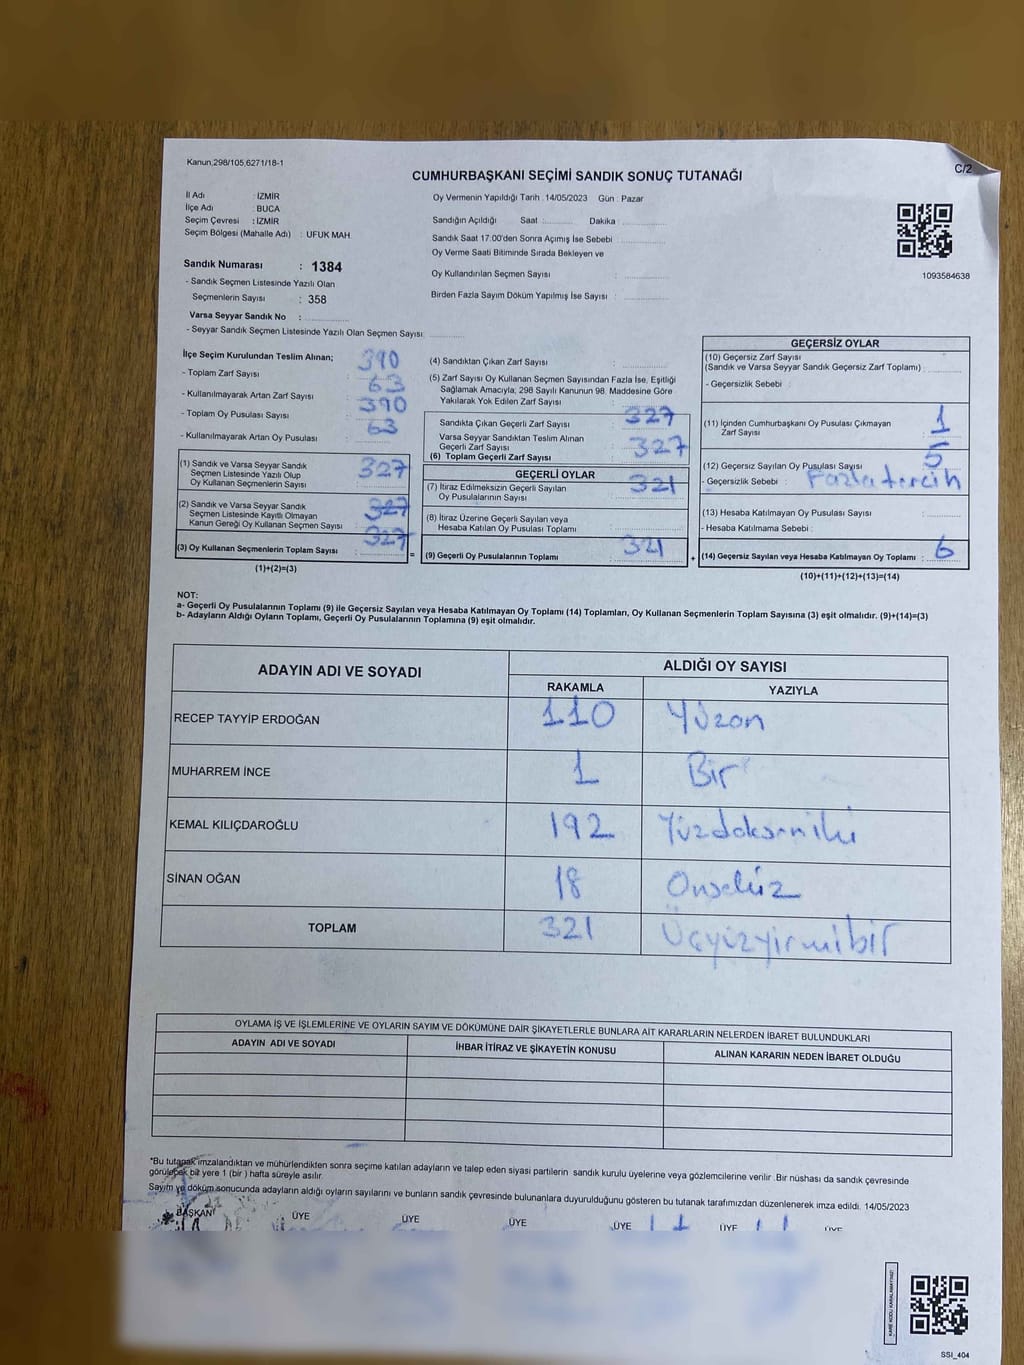 Kanun,298/105,6271/18-1
C/2
CUMHURBAŞKANI SEÇİMİ SANDIK SONUÇ TUTANAĞI
İl Adı : İZMİR
İlçe Adı : BUCA
Seçim Çevresi : İZMİR
Seçim Bölgesi (Mahalle Adı) : UFUK MAH.
Oy Vermenin Yapıldığı Tarih : 14/05/2023 Gün : Pazar
Sandığın Açıldığı Saat : Dakika :
Sandık Saat 17:00'den Sonra Açımış İse Sebebi :
Oy Verme Saati Bitiminde Sırada Bekleyen ve
Oy Kullandırılan Seçmen Sayısı :
Birden Fazla Sayım Döküm Yapılmış İse Sayısı :
1093584638
Sandık Numarası : 1384
- Sandık Seçmen Listesinde Yazılı Olan
Seçmenlerin Sayısı : 358
Varsa Seyyar Sandık No :
- Seyyar Sandık Seçmen Listesinde Yazılı Olan Seçmen Sayısı:
İlçe Seçim Kurulundan Teslim Alınan;
- Toplam Zarf Sayısı : 390
- Kullanılmayarak Artan Zarf Sayısı : 63
- Toplam Oy Pusulası Sayısı : 390
- Kullanılmayarak Artan Oy Pusulası : 63
(1) Sandık ve Varsa Seyyar Sandık
Seçmen Listesinde Yazılı Olup
Oy Kullanan Seçmenlerin Sayısı : 327
(2) Sandık ve Varsa Seyyar Sandık
Seçmen Listesinde Kayıtlı Olmayan
Kanun Gereği Oy Kullanan Seçmen Sayısı : 327
(3) Oy Kullanan Seçmenlerin Toplam Sayısı : 327
(1)+(2)=(3)
(4) Sandıktan Çıkan Zarf Sayısı :
(5) Zarf Sayısı Oy Kullanan Seçmen Sayısından Fazla İse, Eşitliği
Sağlamak Amacıyla; 298 Sayılı Kanunun 98. Maddesine Göre
Yakılarak Yok Edilen Zarf Sayısı :
Sandıkta Çıkan Geçerli Zarf Sayısı : 327
Varsa Seyyar Sandıktan Teslim Alınan
Geçerli Zarf Sayısı :
(6) Toplam Geçerli Zarf Sayısı : 327
GEÇERLİ OYLAR
(7) İtiraz Edilmeksizin Geçerli Sayılan
Oy Pusulalarının Sayısı : 321
(8) İtiraz Üzerine Geçerli Sayılan veya
Hesaba Katılan Oy Pusulası Toplamı :
= (9) Geçerli Oy Pusulalarının Toplamı : 321
GEÇERSİZ OYLAR
(10) Geçersiz Zarf Sayısı
(Sandık ve Varsa Seyyar Sandık Geçersiz Zarf Toplamı) :
- Geçersizlik Sebebi :
(11) İçinden Cumhurbaşkanı Oy Pusulası Çıkmayan
Zarf Sayısı : 1
(12) Geçersiz Sayılan Oy Pusulası Sayısı : 5
- Geçersizlik Sebebi : Fazla tercih
(13) Hesaba Katılmayan Oy Pusulası Sayısı :
- Hesaba Katılmama Sebebi :
+ (14) Geçersiz Sayılan veya Hesaba Katılmayan Oy Toplamı : 6
(10)+(11)+(12)+(13)=(14)
NOT:
a- Geçerli Oy Pusulalarının Toplamı (9) ile Geçersiz Sayılan veya Hesaba Katılmayan Oy Toplamı (14) Toplamları, Oy Kullanan Seçmenlerin Toplam Sayısına (3) eşit olmalıdır. (9)+(14)=(3)
b- Adayların Aldığı Oyların Toplamı, Geçerli Oy Pusulalarının Toplamına (9) eşit olmalıdır.
ADAYIN ADI VE SOYADI ALDIĞI OY SAYISI
RAKAMLA YAZIYLA
RECEP TAYYİP ERDOĞAN 110 Yüzon
MUHARREM İNCE 1 Bir
KEMAL KILIÇDAROĞLU 192 Yüzdoksaniki
SİNAN OĞAN 18 Onsekiz
TOPLAM 321 Üçyüzyirmibir
OYLAMA İŞ VE İŞLEMLERİNE VE OYLARIN SAYIM VE DÖKÜMÜNE DAİR ŞİKAYETLERLE BUNLARA AİT KARARLARIN NELERDEN İBARET BULUNDUKLARI
ADAYIN ADI VE SOYADI İHBAR İTİRAZ VE ŞİKAYETİN KONUSU ALINAN KARARIN NEDEN İBARET OLDUĞU
*Bu tutanak imzalandıktan ve mühürlendikten sonra seçime katılan adayların ve talep eden siyasi partilerin sandık kurulu üyelerine veya gözlemcilerine verilir .Bir nüshası da sandık çevresinde
görülecek bir yere 1 (bir ) hafta süreyle asılır.
Sayım ve döküm sonucunda adayların aldığı oyların sayılarını ve bunların sandık çevresinde bulunanlara duyurulduğunu gösteren bu tutanak tarafımızdan düzenlenerek imza edildi. 14/05/2023
BAŞKAN ÜYE ÜYE ÜYE ÜYE ÜYE ÜYE
KARE KODU KARALAMAYINIZ!
SSI_404